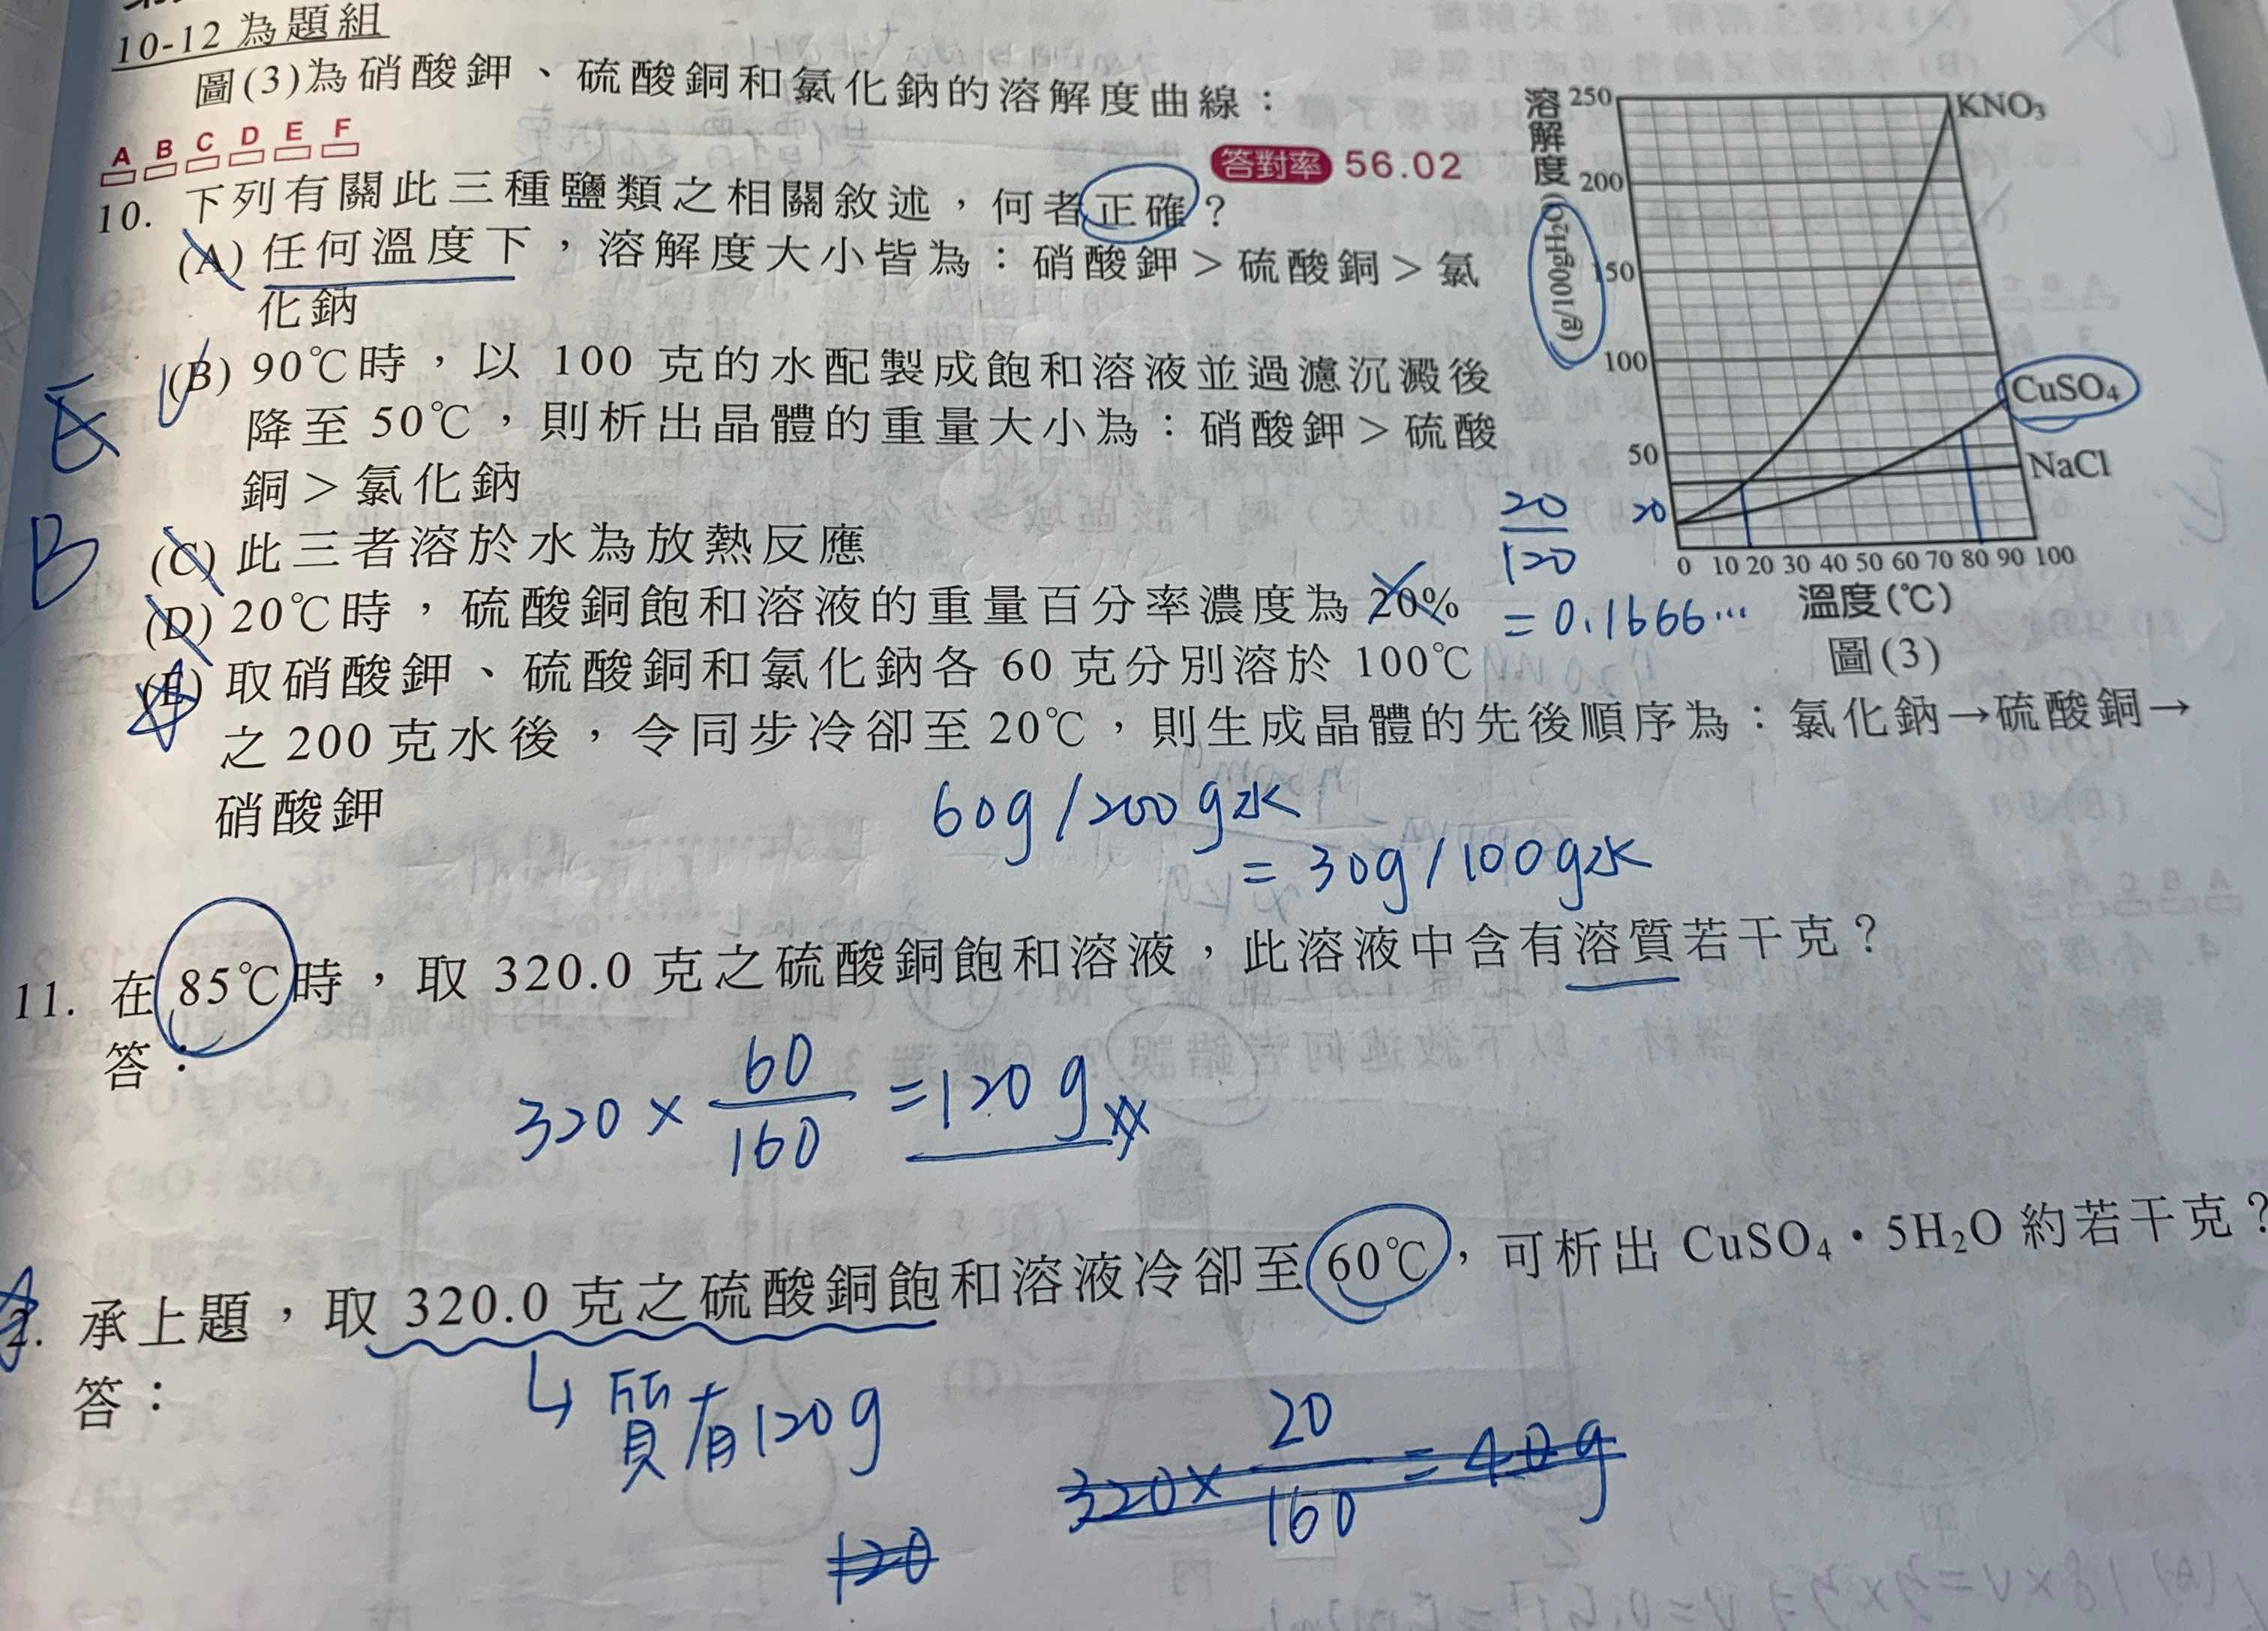 10-12 為題組
圖(3)為硝酸鉀、硫酸銅和氯化鈉的溶解度曲線：
A B C D E F
答對率 56.02
10. 下列有關此三種鹽類之相關敘述，何者正確？
(A) 任何溫度下，溶解度大小皆為：硝酸鉀＞硫酸銅＞氯
化鈉
(B) 90℃時，以 100 克的水配製成飽和溶液並過濾沉澱後
降至 50℃，則析出晶體的重量大小為：硝酸鉀＞硫酸
銅＞氯化鈉
(C) 此三者溶於水為放熱反應
(D) 20℃時，硫酸銅飽和溶液的重量百分率濃度為 20%
(E) 取硝酸鉀、硫酸銅和氯化鈉各 60 克分別溶於 100℃
之 200 克水後，令同步冷卻至 20℃，則生成晶體的先後順序為：氯化鈉→硫酸銅→
硝酸鉀
E
B
溶解度 (g/100gH₂O)
250
200
150
100
50
20
KNO₃
CuSO₄
NaCl
0 10 20 30 40 50 60 70 80 90 100
溫度(℃)
圖(3)
20
120
= 0.1666...
60g/200g水
= 30g/100g水
11. 在 85℃時，取 320.0 克之硫酸銅飽和溶液，此溶液中含有溶質若干克？
答：
320 × 60/160 = 120 g
2. 承上題，取 320.0 克之硫酸銅飽和溶液冷卻至 60℃，可析出 CuSO₄・5H₂O 約若干克？
答：
↳ 質有120g
320× 20/160 = 40g
120